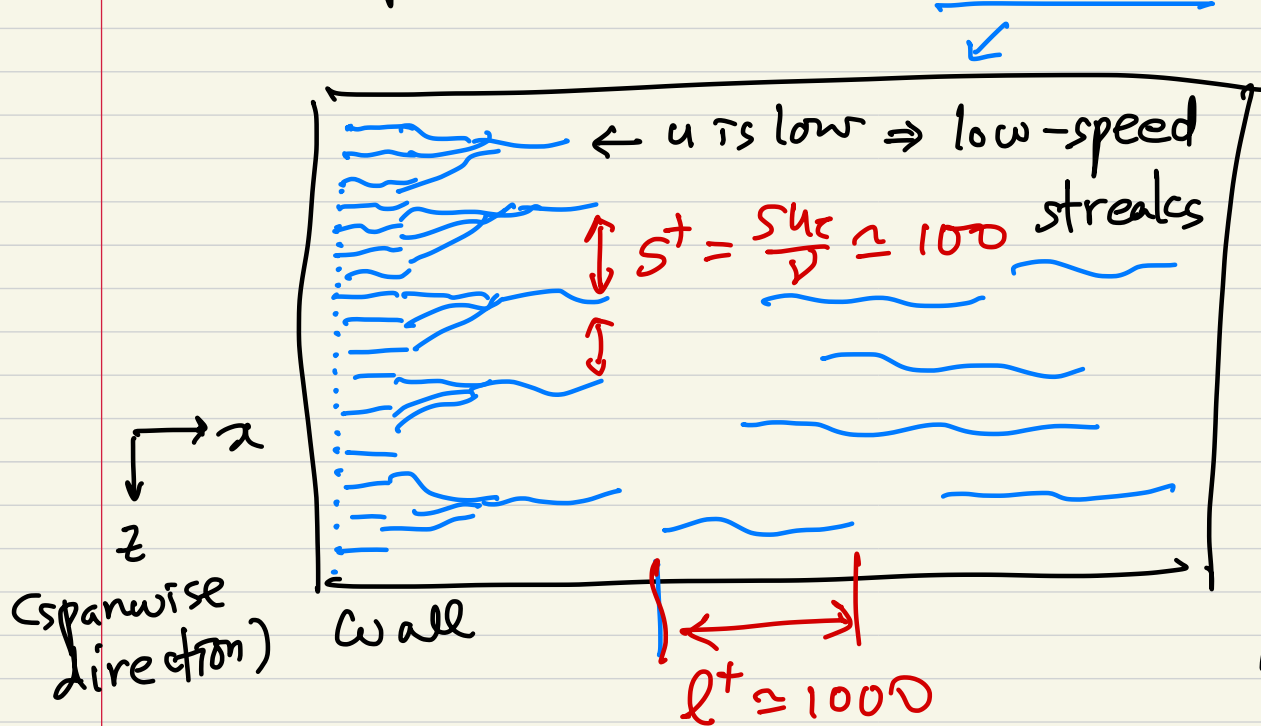 ← u is low ⇒ low-speed
streaks
s⁺ = su_τ/ν ≃ 100
x
z
(spanwise
direction)
wall
l⁺ ≃ 1000